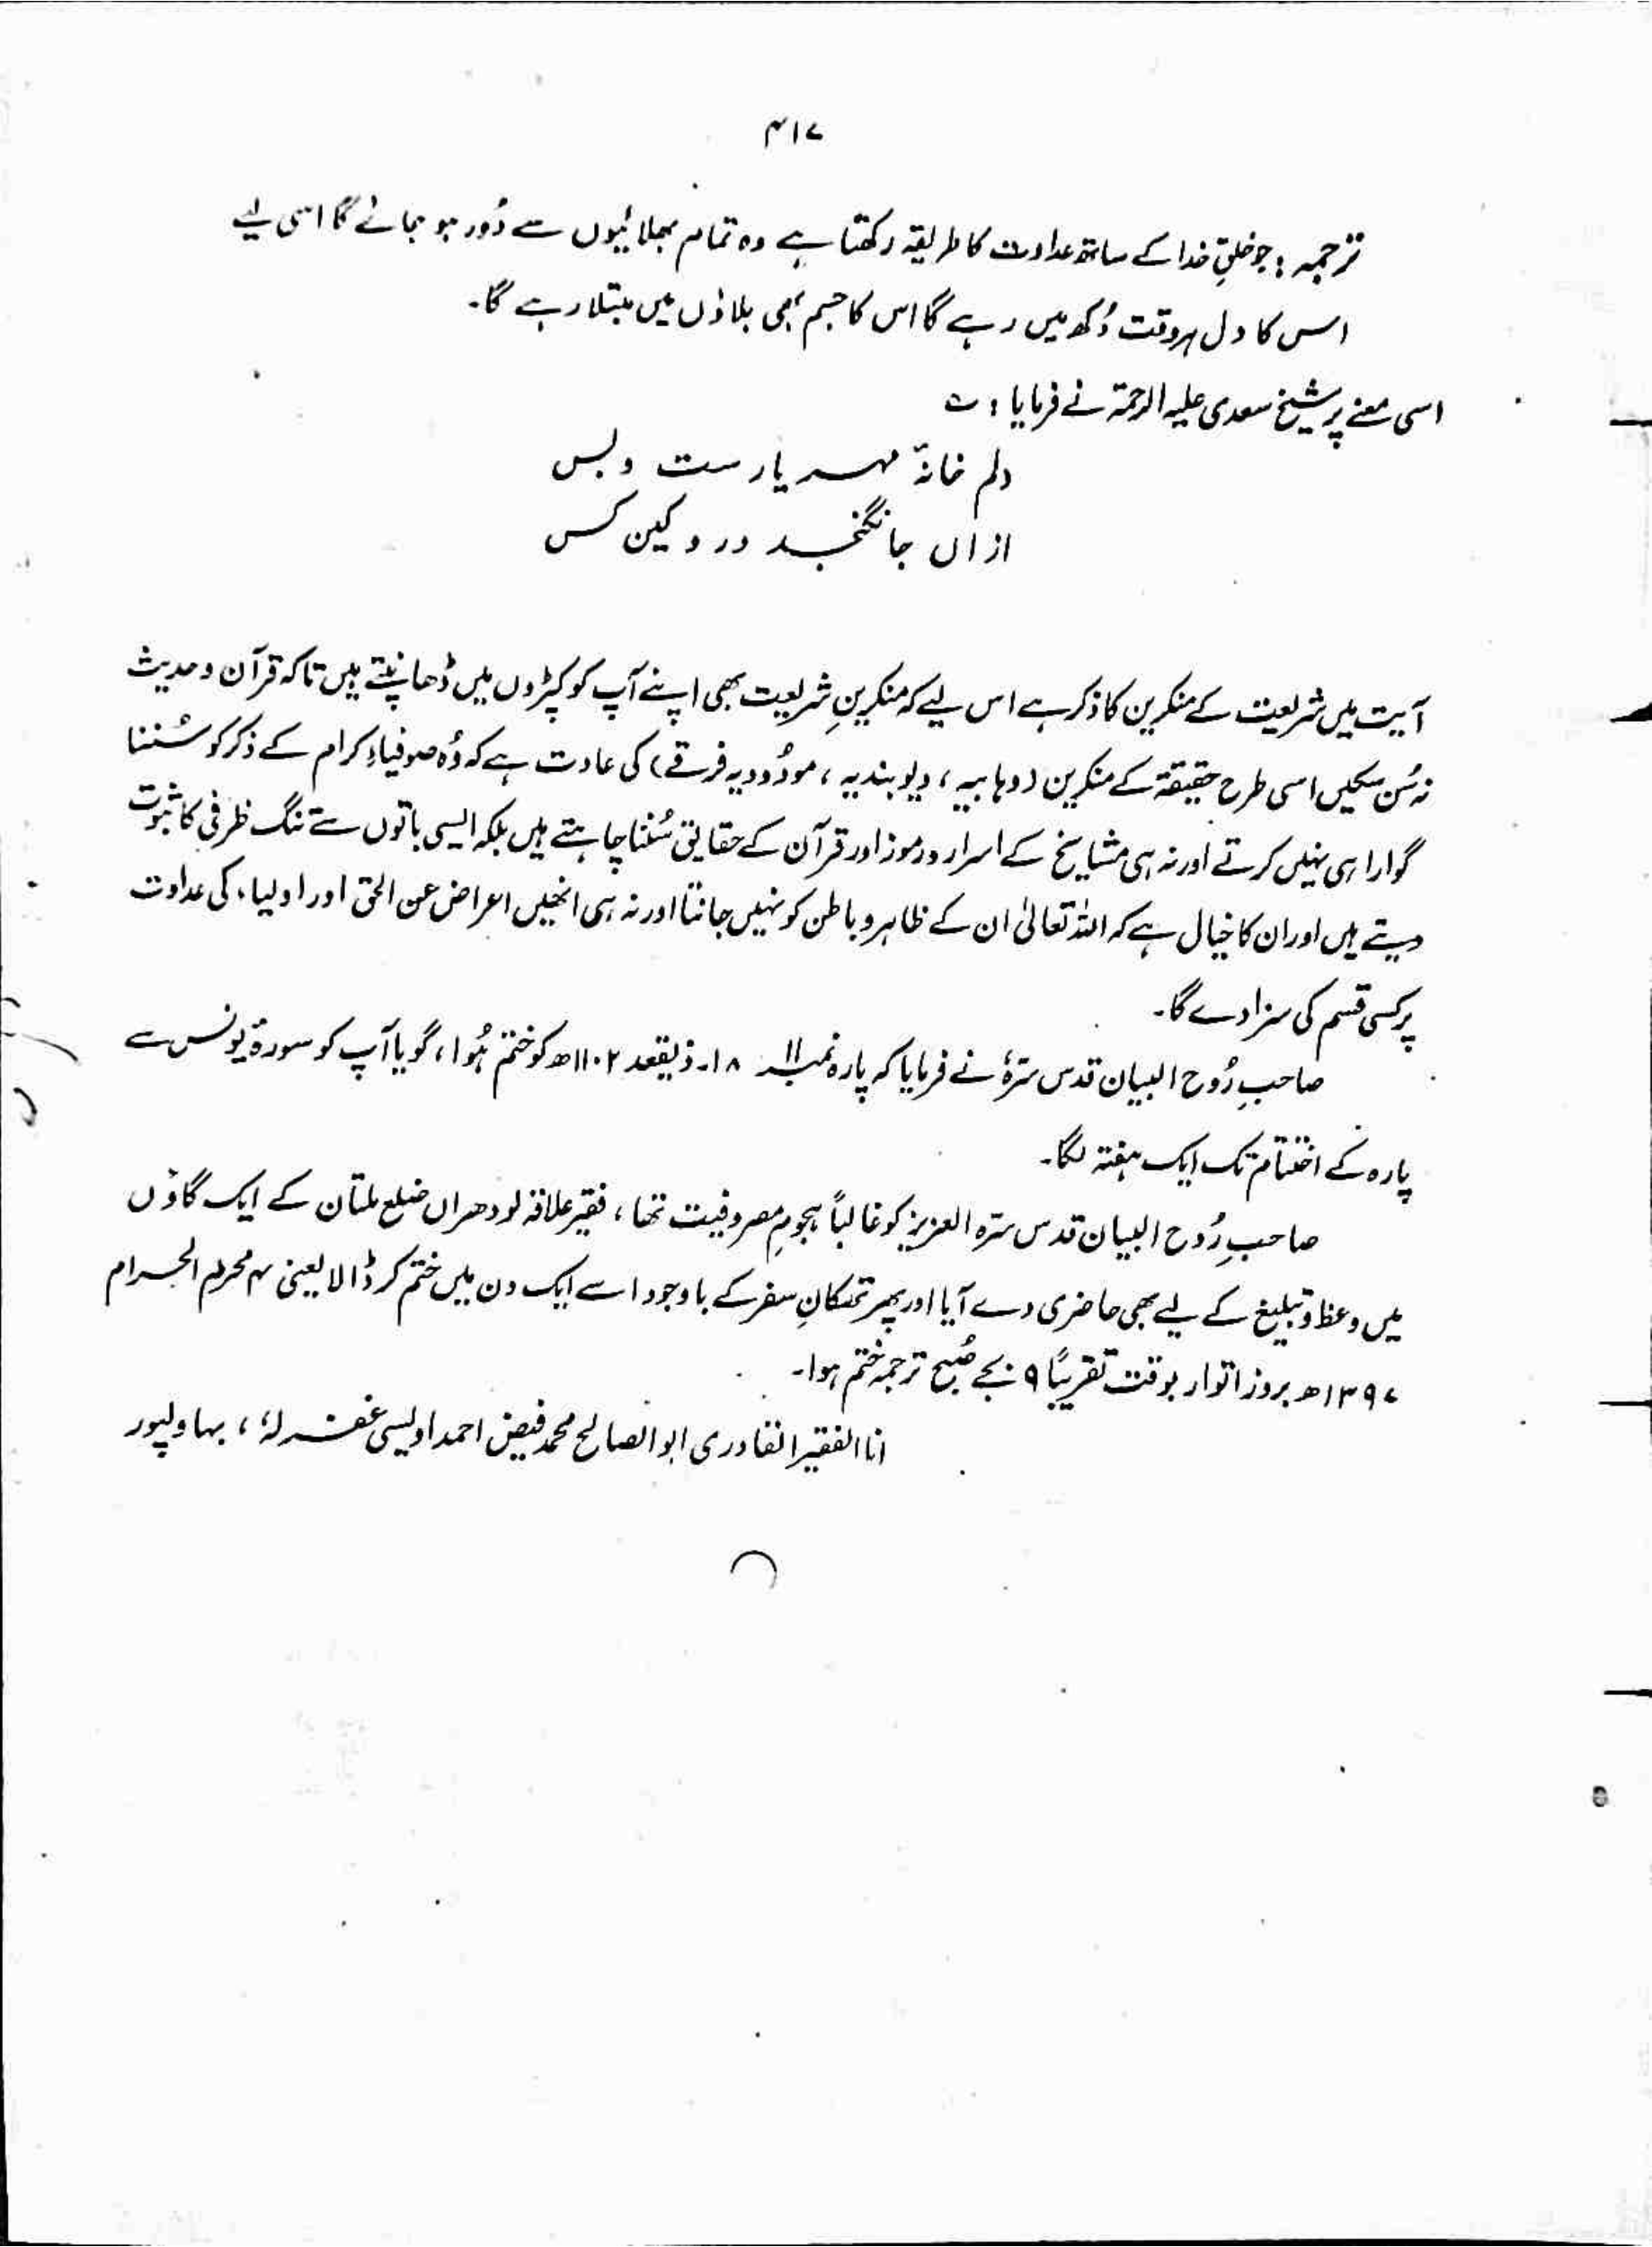 ۴۱۷
ترجمہ : جو خلقِ خدا کے ساتھ عداوت کا طریقہ رکھتا ہے وہ تمام بھلائیوں سے دُور ہو جائے گا اسی لیے
اس کا دل ہر وقت دُکھ میں رہے گا اس کا جسم بھی بلاؤں میں مبتلا رہے گا۔
اسی معنے پر شیخ سعدی علیہ الرحمۃ نے فرمایا : ؎
دلم خانۂ مہر یار ست و بس
ازاں جا نگنجد درو کین کس
آیت میں شریعت کے منکرین کا ذکر ہے اس لیے کہ منکرینِ شریعت بھی اپنے آپ کو کپڑوں میں ڈھانپتے ہیں تاکہ قرآن و حدیث
نہ سُن سکیں اسی طرح حقیقۃ کے منکرین (وہابیہ، دیوبندیہ، مودُودیہ فرقے) کی عادت ہے کہ وُہ صوفیاءِ کرام کے ذکر کو سُننا
گوارا ہی نہیں کرتے اور نہ ہی مشایخ کے اسرار و رموز اور قرآن کے حقایق سُننا چاہتے ہیں بلکہ ایسی باتوں سے تنگ ظرفی کا ثبوت
دیتے ہیں اور ان کا خیال ہے کہ اللہ تعالیٰ ان کے ظاہر و باطن کو نہیں جانتا اور نہ ہی انھیں اعراض عن الحق اور اولیاء کی عداوت
پر کسی قسم کی سزا دے گا۔
صاحبِ رُوح البیان قدس سرّہٗ نے فرمایا کہ پارہ نمبر ۱۱ ۱۸۔ ذیقعد ۱۱۰۲ھ کو ختم ہُوا، گویا آپ کو سورۃ یونس سے
پارہ کے اختتام تک ایک ہفتہ لگا۔
صاحبِ رُوح البیان قدس سرّہ العزیز کو غالباً ہجومِ مصروفیت تھا، فقیر علاقہ لودھراں ضلع ملتان کے ایک گاؤں
میں وعظ و تبلیغ کے لیے بھی حاضری دے آیا اور پھر تھکانِ سفر کے باوجود اسے ایک دن میں ختم کر ڈالا یعنی ۴ محرم الحرام
۱۳۹۷ھ بروز اتوار بوقت تقریباً ۹ بجے صُبح ترجمہ ختم ہوا۔
انا الفقیر القادری ابو الصالح محمد فیض احمد اویسی غفرلہٗ، بہاولپور